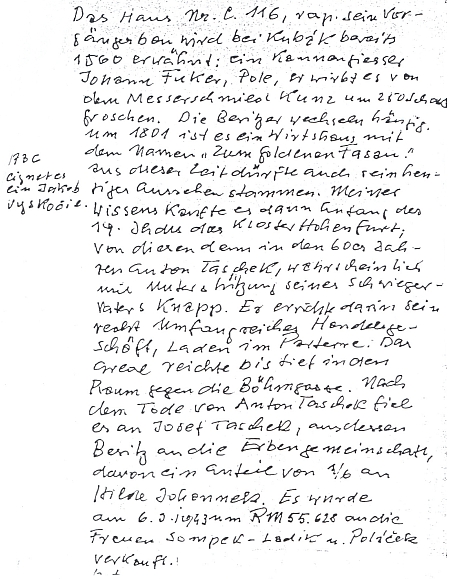 Das Haus Nr. C. 116, resp. sein Vor-
gängerbau wird bei Kubák bereits
1560 erwähnt: ein Kannengiesser
Johann Fuker, Pole, erwirbt es von
dem Messerschmied Kunz um 250 Schock
groschen. Die Besitzer wechseln häufig.
Um 1801 ist es ein Wirtshaus mit
dem Namen „Zum goldenen Fasan."
aus dieser Zeit dürfte auch sein heu-
tiges Aussehen stammen. Meines
Wissens kaufte es dann Anfang des
19. Jhdts das Kloster Hohenfurt,
von diesen dann in den 60er Jah-
ren Anton Taschek, wahrscheinlich
mit Unterstützung seines Schwieger-
vaters Knapp. Er errichte darin sein
recht umfangreiches Handelsge-
schäft, Laden im Parterre. Das
Areal reichte bis tief in den
Raum gegen die Böhmgasse. Nach
dem Tode von Anton Taschek fiel
es an Josef Taschek, aus dessen
Besitz an die Erbengemeinschaft,
davon ein Anteil von 1/6 an
Hilde Johannek. Es wurde
am 6.3.1943 um RM 55.628 an die
Frauen Sompek-Ladik u. Poláček
verkauft.
eignet es
ein Jakob
Vyskočil.